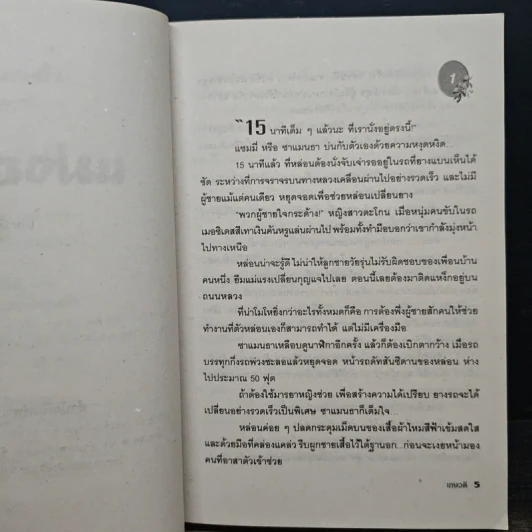 1
"15 นาทีเต็ม ๆ แล้วนะ ที่เรานั่งอยู่ตรงนี้!"
แซมมี่ หรือ ซาแมนธา บ่นกับตัวเองด้วยความหงุดหงิด...
15 นาทีแล้ว ที่หล่อนต้องนั่งจับเจ่ารออยู่ในรถที่ยางแบนเห็นได้
ชัด ระหว่างที่การจราจรบนทางหลวงเคลื่อนผ่านไปอย่างรวดเร็ว และไม่มี
ผู้ชายแม้แต่คนเดียว หยุดจอดเพื่อช่วยหล่อนเปลี่ยนยาง
"พวกผู้ชายใจกระด้าง!" หญิงสาวตะโกน เมื่อหนุ่มคนขับในรถ
เมอซิเดสสีเทาเงินคันหรูแล่นผ่านไป พร้อมทั้งทำมือบอกว่าเขากำลังมุ่งหน้า
ไปทางเหนือ
หล่อนน่าจะรู้ดี ไม่น่าให้ลูกชายวัยรุ่นไม่รับผิดชอบของเพื่อนบ้าน
คนหนึ่ง ยืมแม่แรงเปลี่ยนกุญแจไปเลย ตอนนี้เลยต้องมาติดแหง็กอยู่บน
ถนนหลวง
ที่น่าโมโหยิ่งกว่าอะไรทั้งหมดก็คือ การต้องพึ่งผู้ชายสักคนให้ช่วย
ทำงานที่ตัวหล่อนเองก็สามารถทำได้ แต่ไม่มีเครื่องมือ
ซาแมนธาเหลือบดูนาฬิกาอีกครั้ง แล้วก็ต้องเบิกตากว้าง เมื่อรถ
บรรทุกกึ่งรถพ่วงชะลอแล้วหยุดจอด หน้ารถดัทสันซีดานของหล่อน ห่าง
ไปประมาณ 50 ฟุต
ถ้าต้องใช้มารยาหญิงช่วย เพื่อสร้างความได้เปรียบ ยางรถจะได้
เปลี่ยนอย่างรวดเร็วเป็นพิเศษ ซาแมนธาก็เต็มใจ...
หล่อนค่อย ๆ ปลดกระดุมเม็ดบนของเสื้อผ้าไหมสีฟ้าเข้มสดใส
และด้วยมือที่คล่องแคล่ว รีบผูกชายเสื้อไว้ใต้ฐานอก...ก่อนจะเงยหน้ามอง
คนที่อาสาตัวเข้าช่วย
เกษวดี 5